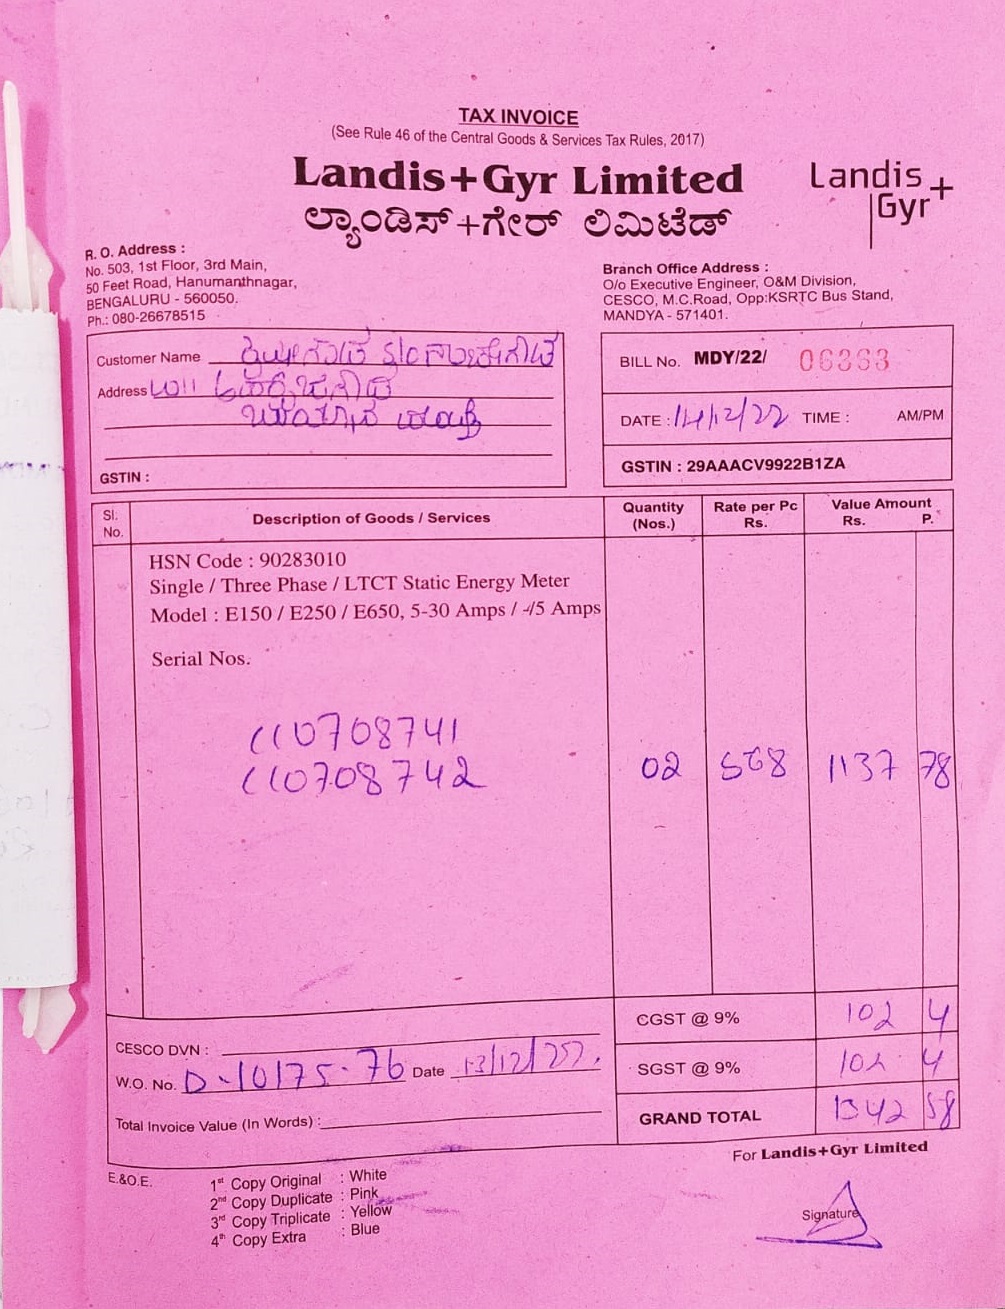 TAX INVOICE
(See Rule 46 of the Central Goods & Services Tax Rules, 2017)
Landis+Gyr Limited
ಲ್ಯಾಂಡಿಸ್+ಗೇರ್ ಲಿಮಿಟೆಡ್
Landis
Gyr+
R. O. Address :
No. 503, 1st Floor, 3rd Main,
50 Feet Road, Hanumanthnagar,
BENGALURU - 560050.
Ph.: 080-26678515
Branch Office Address :
O/o Executive Engineer, O&M Division,
CESCO, M.C.Road, Opp:KSRTC Bus Stand,
MANDYA - 571401.
Customer Name
Address
GSTIN :
BILL No. MDY/22/ 06363
DATE : 14/12/22 TIME : AM/PM
GSTIN : 29AAACV9922B1ZA
Sl. No. Description of Goods / Services Quantity (Nos.) Rate per Pc Rs. Value Amount Rs. P.
HSN Code : 90283010
Single / Three Phase / LTCT Static Energy Meter
Model : E150 / E250 / E650, 5-30 Amps / -/5 Amps
Serial Nos.
110708741
110708742 02 568 1137 78
CGST @ 9% 102 4
SGST @ 9% 102 4
GRAND TOTAL 1342 58
CESCO DVN :
W.O. No. D-10175-76 Date 13/12/22.
Total Invoice Value (In Words) :
For Landis+Gyr Limited
E.&O.E.
1st Copy Original : White
2nd Copy Duplicate : Pink
3rd Copy Triplicate : Yellow
4th Copy Extra : Blue
Signature